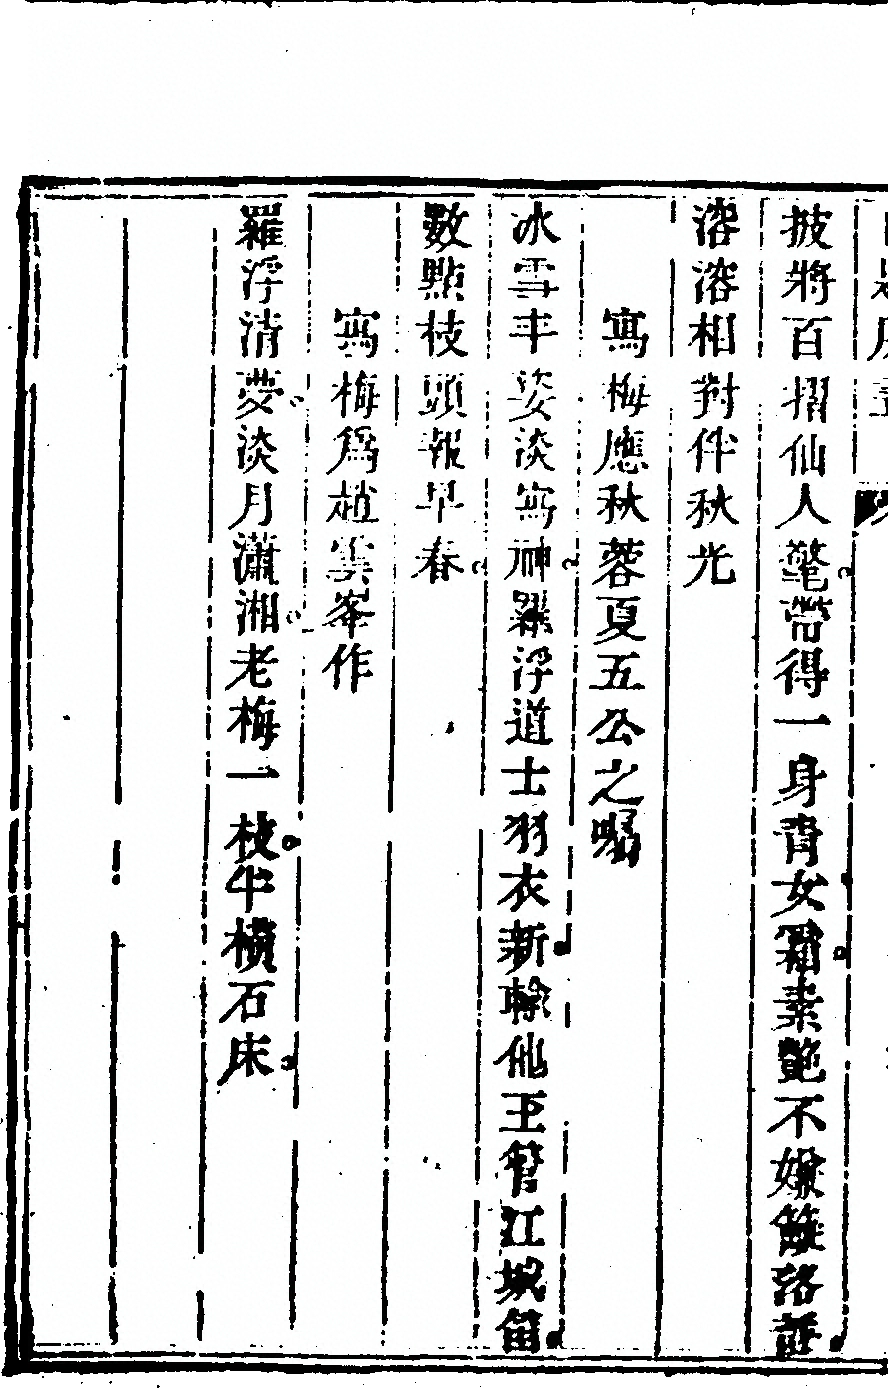 披將百摺仙人氅帶得一身青女霜素艷不嫌籬落
溶溶相對伴秋光
寫梅應秋蓉夏五公之囑
冰雪丰姿淡寫神羅浮道士羽衣新輸他玉管江城笛
數點枝頭報早春
寫梅爲趙雲峯作
羅浮清夢淡月瀟湘老梅一枝半橫石床